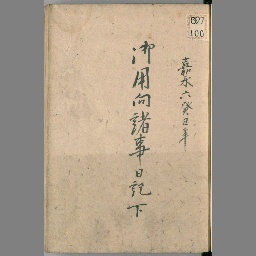 827
100
嘉永六癸丑年
御用向諸事日記 下